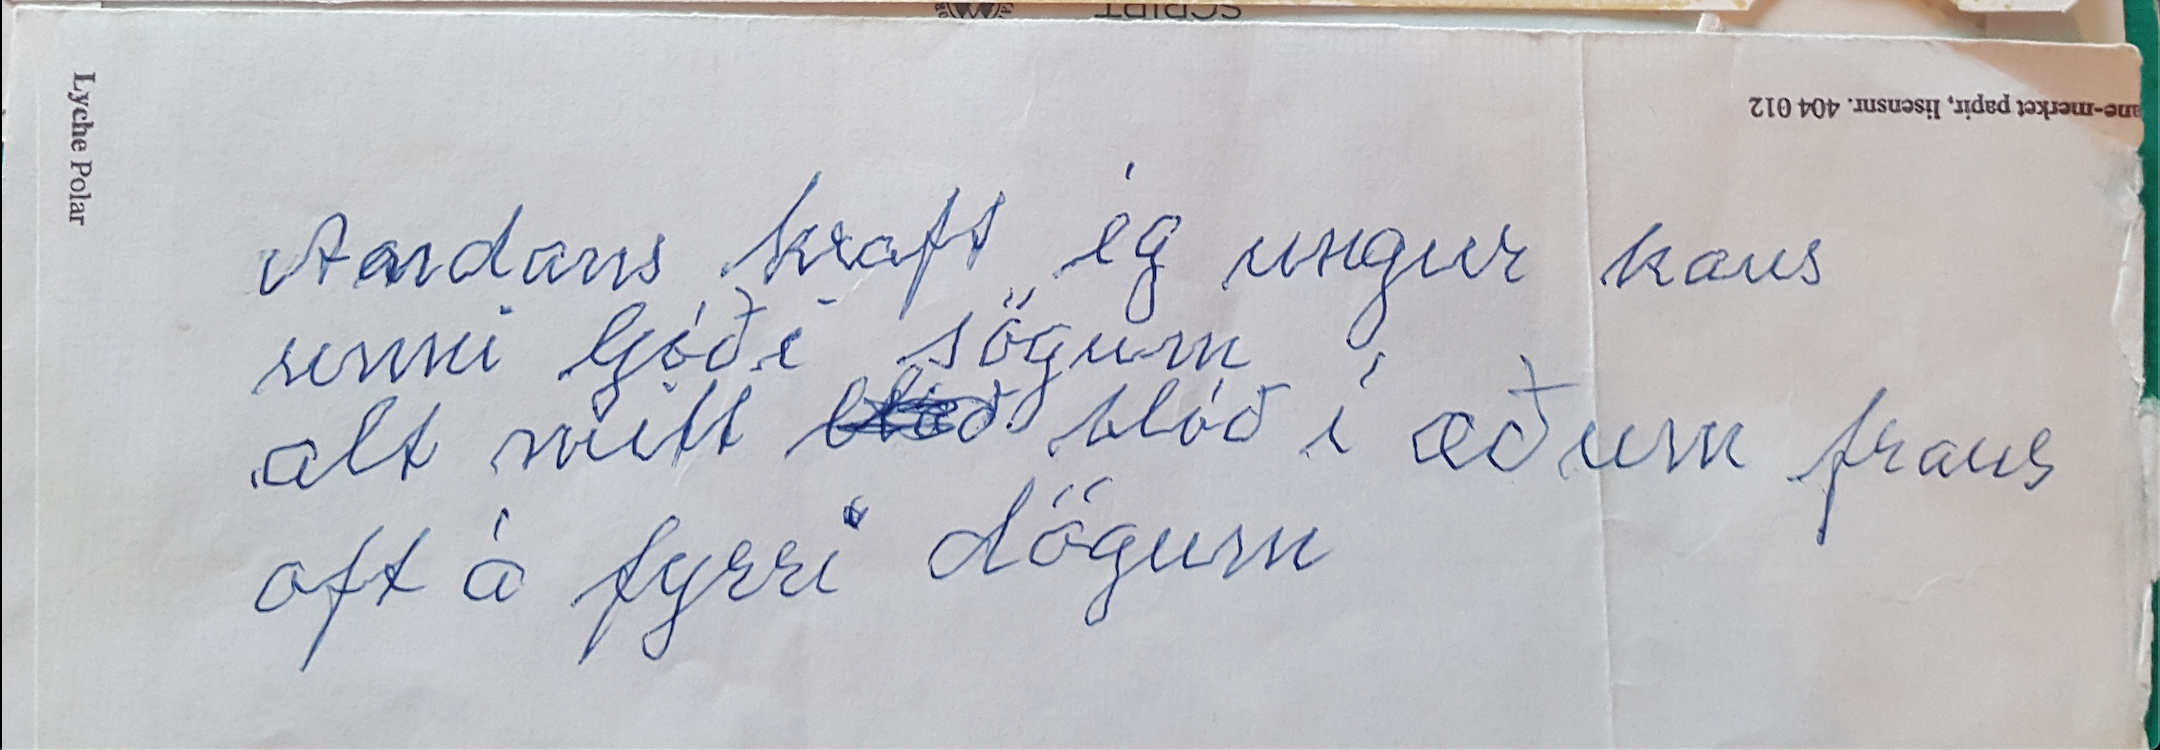 SCRIPT
Lyche Polar
ane-merket papir, lisensnr. 404 012
Andans kraft ég ungur kaus
unni ljóði sögum
alt mitt blóð í æðum fraus
oft á fyrri dögum